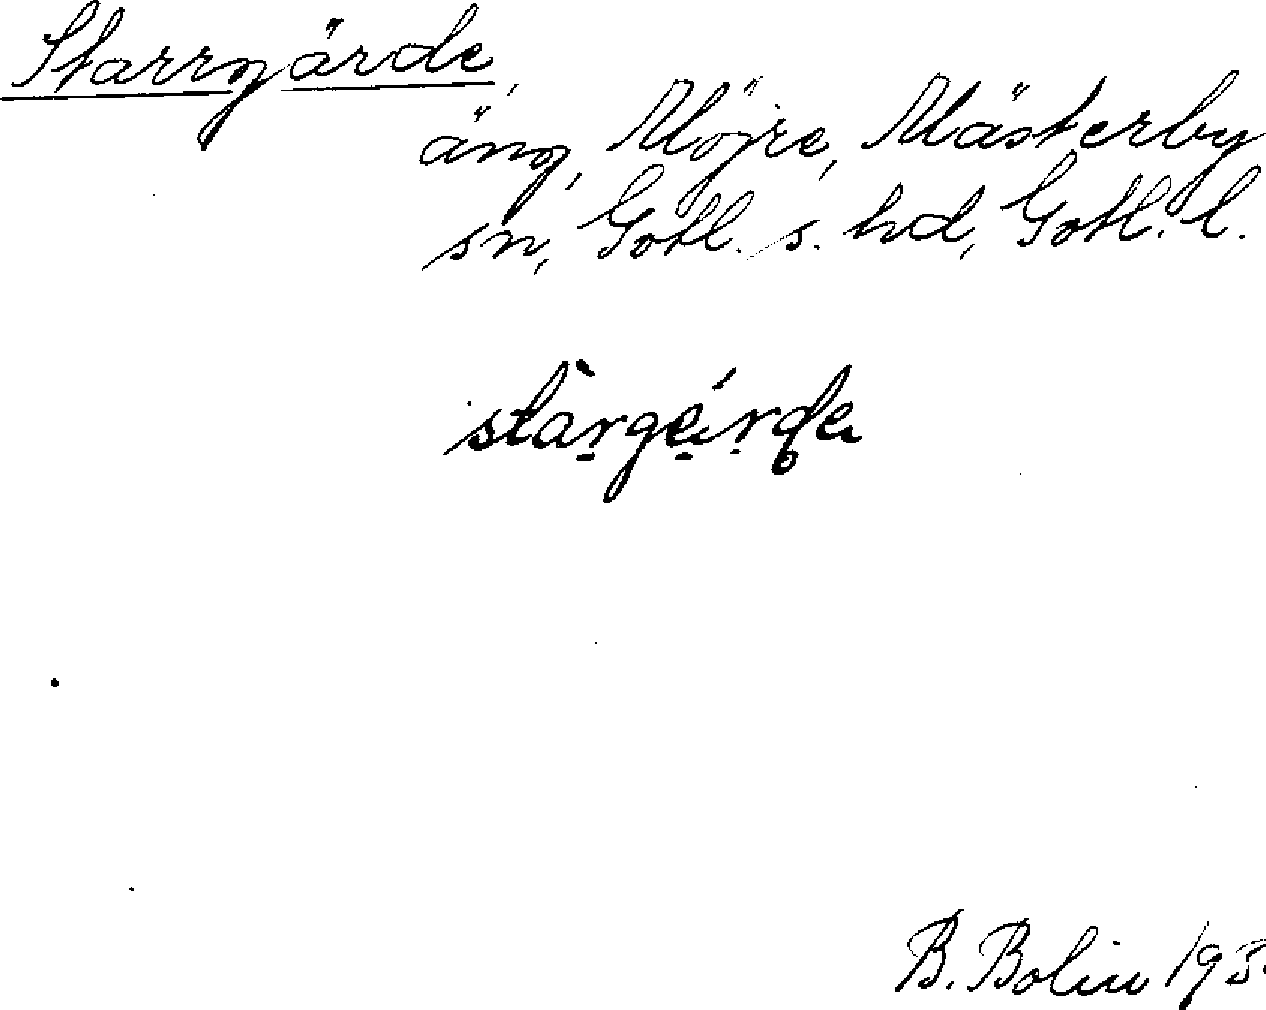 Starrgärde,
äng, Möjre, Mästerby
sn, Gotl. s. hd, Gotl. l.
stàrgéⱹrde
B. Bolin 193